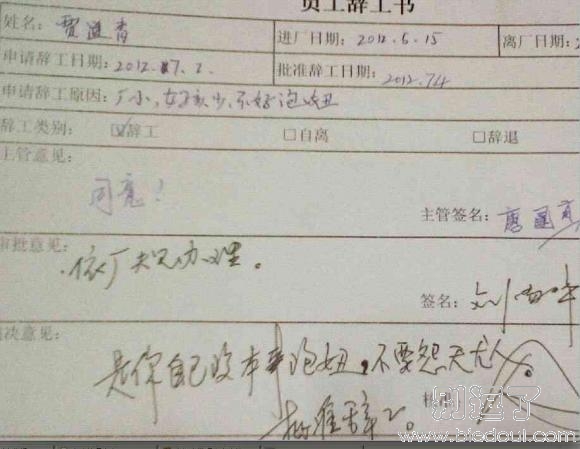 员工辞工书
姓名: 贾 进厂日期: 2012.5.15 离厂日期:
申请辞工日期: 2012.7.2. 批准辞工日期: 2012.7.4
申请辞工原因: 厂小,女孩少,不好泡妞
辞工类别: ☑辞工 □自离 □辞退
主管意见:
同意!
主管签名: 唐
审批意见:
依厂规办理。
签名: 刘
决意见:
是你自己没本事泡妞,不要怨天尤人。
批准辞工。
别逗了
www.biedoul.com